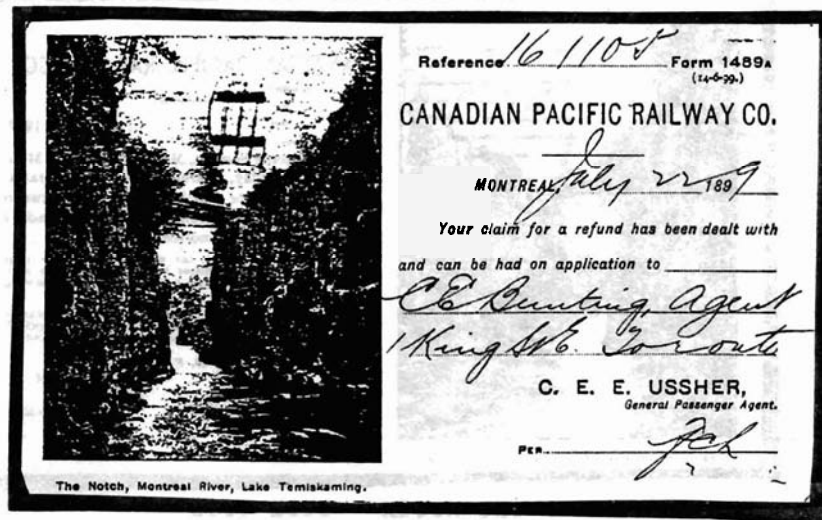 Reference 161105 Form 1489A
(14-6-99.)
CANADIAN PACIFIC RAILWAY CO.
MONTREAL, July 22 1899
Your claim for a refund has been dealt with
and can be had on application to
CE Bunting, Agent
1 King St E. Toronto
C. E. E. USSHER,
General Passenger Agent.
PER
The Notch, Montreal River, Lake Temiskaming.